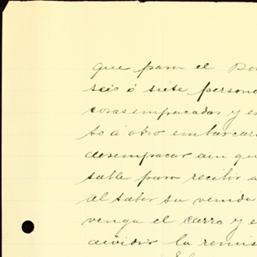 que para el
seis ó siete person
cosas empacadas y es
to a otro embarcar
desempacar aun qu
salle para recibir a
al saber su venida
venga el carro y e
dividir la remis